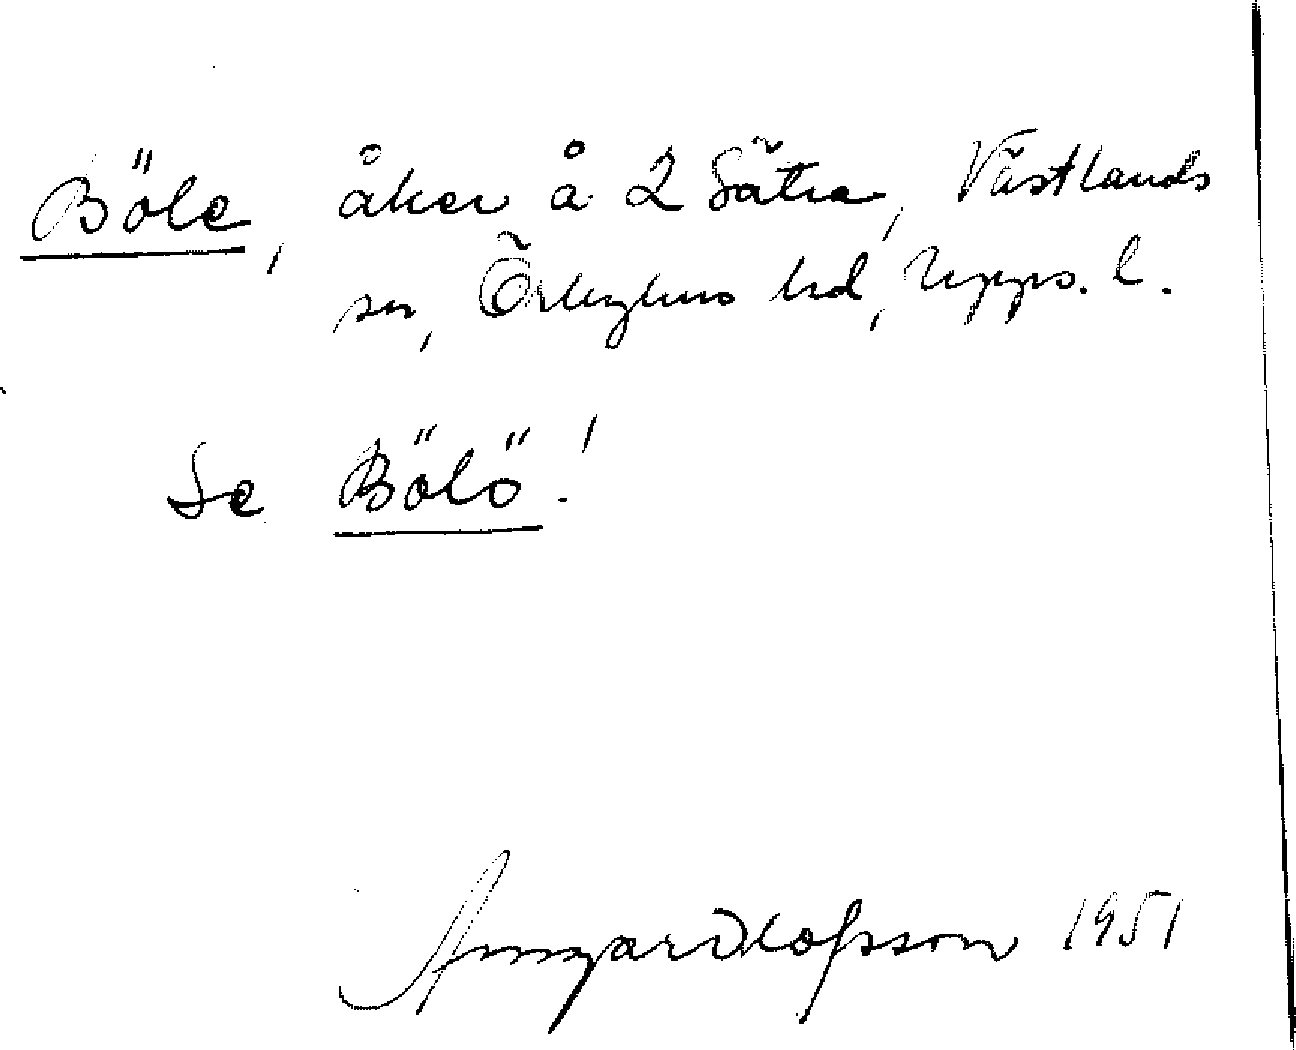 Böle, åker å 2 Sätra, Västlands
sn, Örbyhus hd, Upps. l.
Se Bölö!
Olofsson 1951